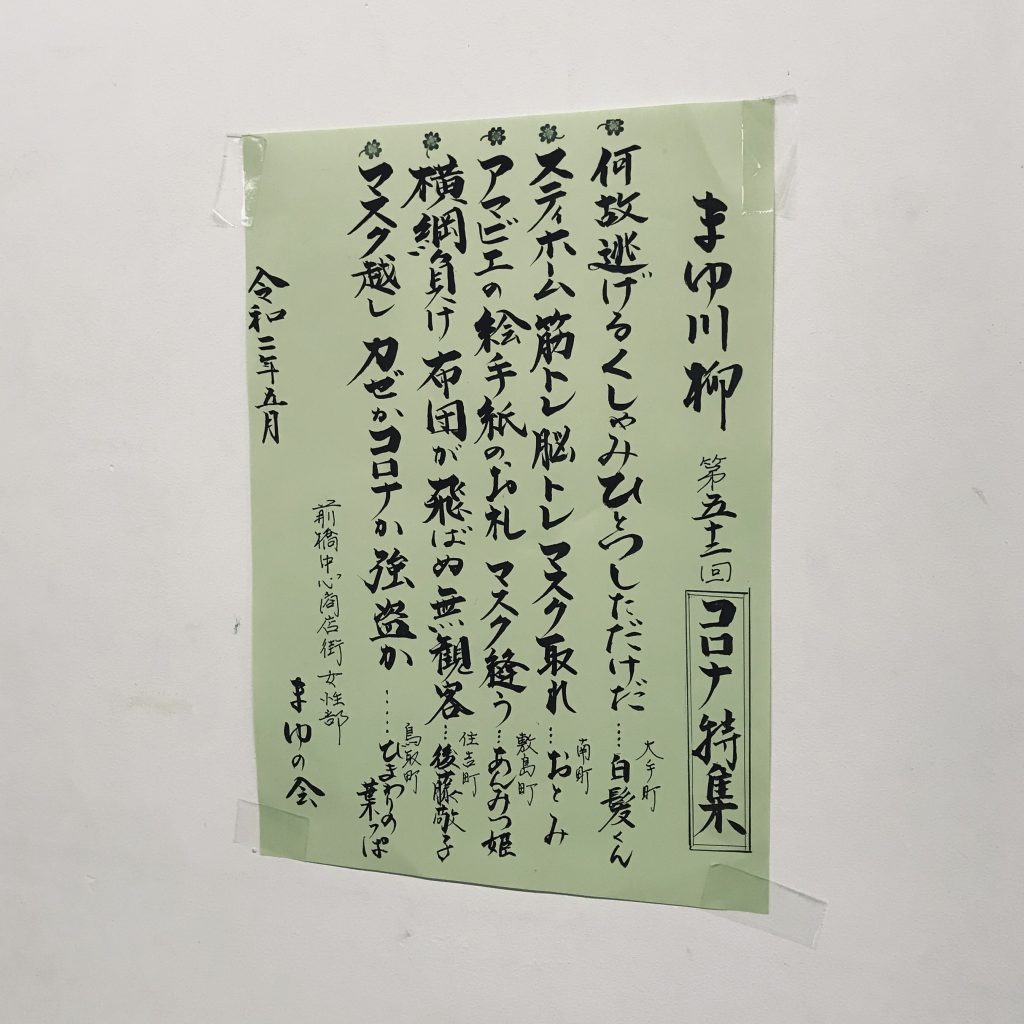 まゆ川柳 第五十二回 コロナ特集
何故逃げるくしゃみひとつしただけだ……大手町 白髪くん
スティホーム筋トレ脳トレマスク取れ…南町 おとみ
アマビエの絵手紙のお札 マスク縫う…敷島町 あんみつ姫
横綱負け 布団が飛ばぬ無観客…住吉町 後藤敬子
マスク越し カゼかコロナか強盗か……鳥取町 ひまわりの葉っぱ
前橋中心商店街 女性部
まゆの会
令和二年五月